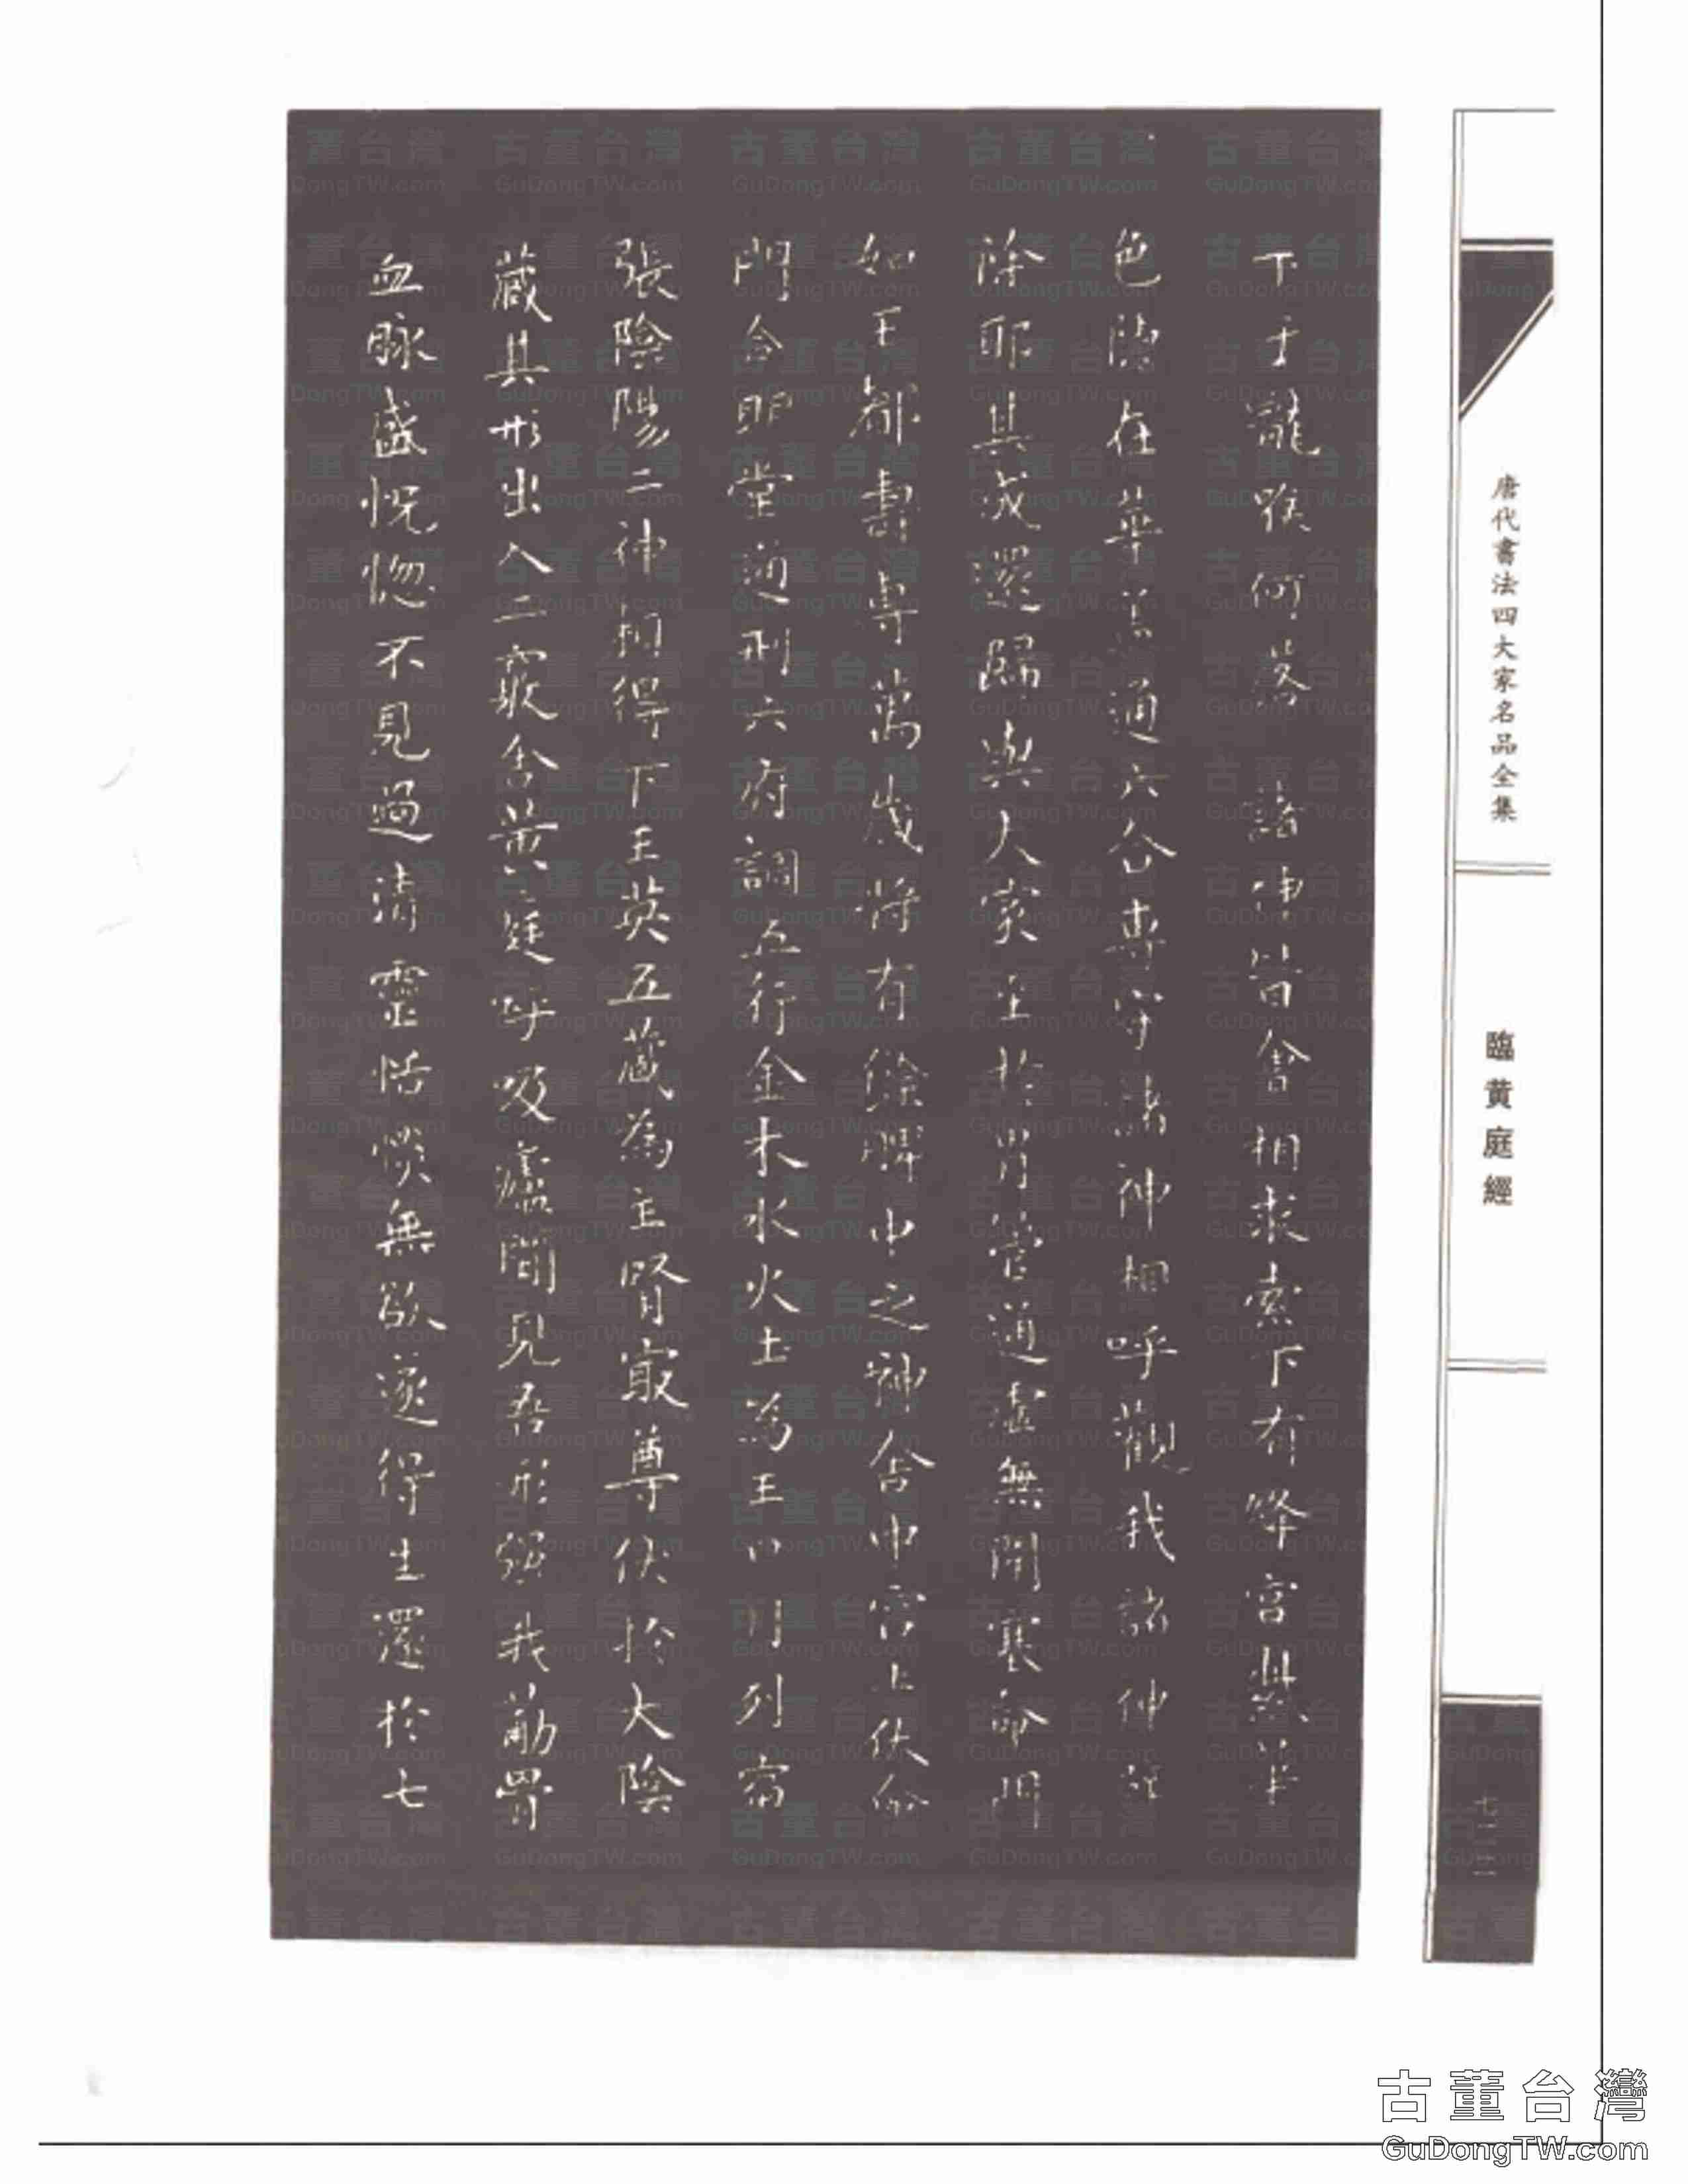 唐代書法四大家名品全集
臨黄庭經
七二二
下于嚨喉何落諸神皆會相求索下有絳宮紫華
色隱在華盖通六合專守諸神相呼觀我諸神辟
除耶其成還歸與大家至於胃管通虛無閉塞命門
如王都壽專萬歲將有餘脾中之神舍中宮上伏命
門合明堂通利六府調五行金木水火土為王日月列宿
張陰陽二神相得下王英五藏為主腎冣尊伏於大陰
藏其形出入二竅舍黃庭呼吸廬間見吾形強我荕骨
血脉盛恍惚不見過清靈恬惔無欲遂得生還於七
古董台灣
GuDongTW.com